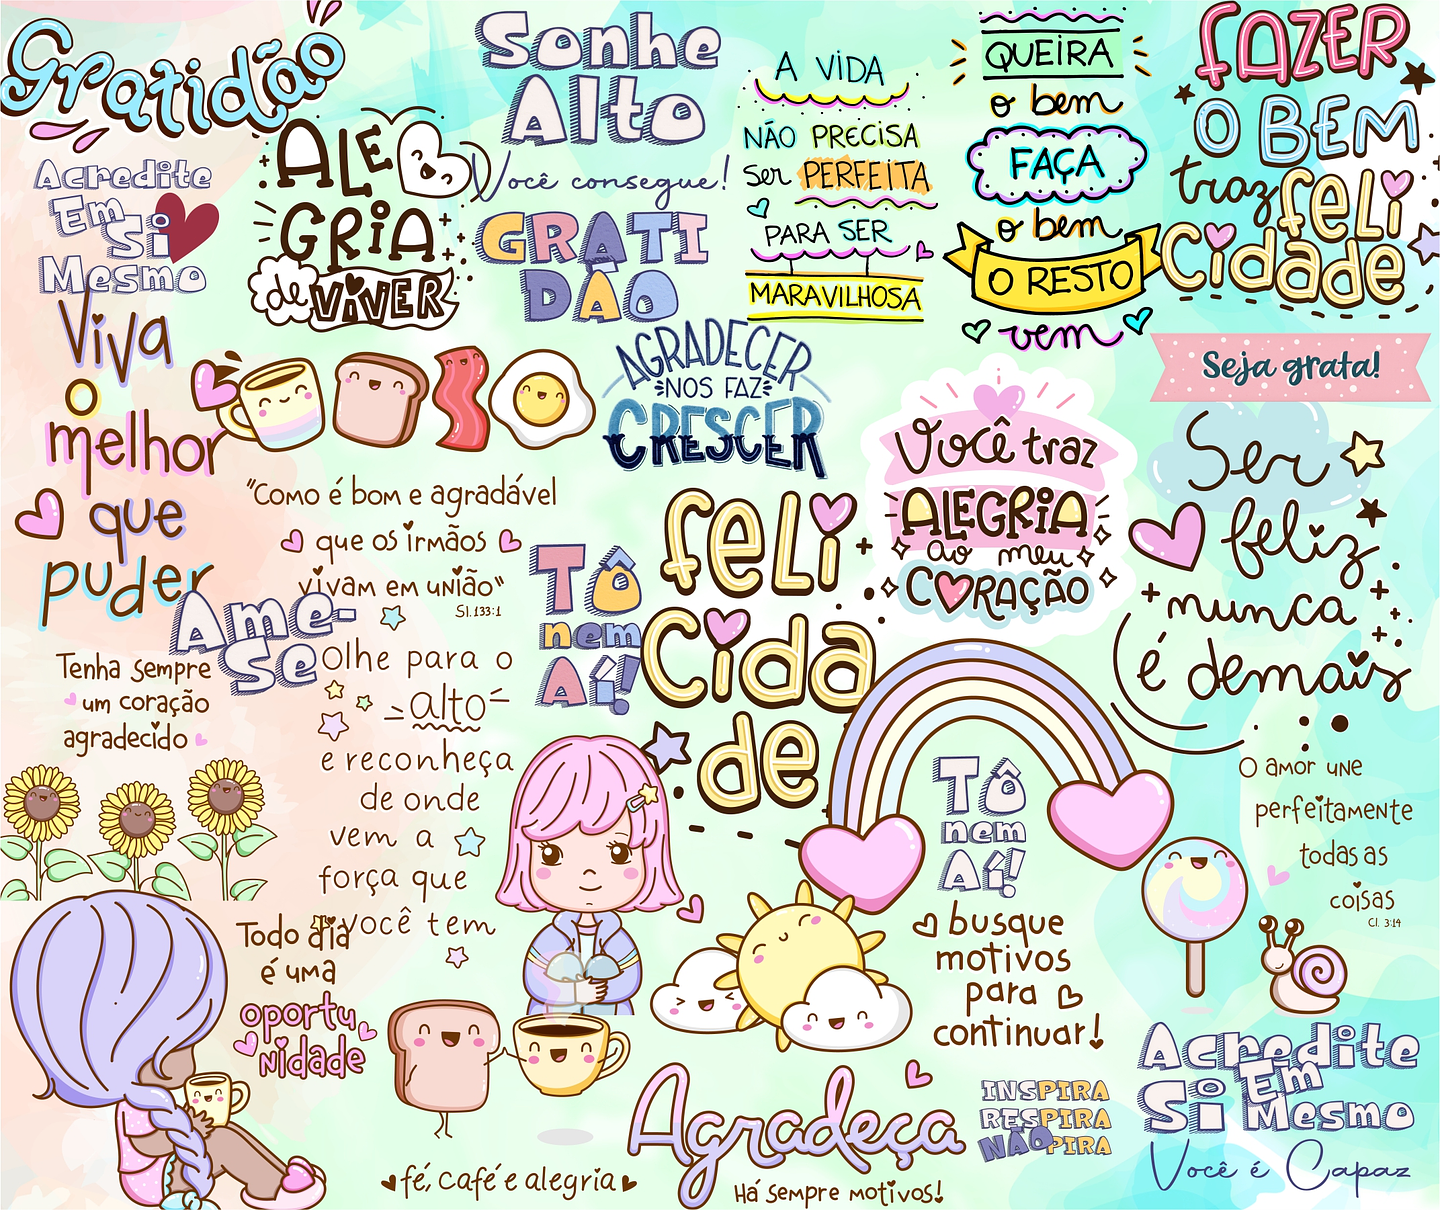 Gratidão
Acredite
Em
Si
Mesmo
ALE
GRIA
de VIVER
Sonhe
Alto
Você consegue!
GRATI
DÃO
A VIDA
NÃO PRECISA
Ser PERFEITA
PARA SER
MARAVILHOSA
QUEIRA
o bem
FAÇA
o bem
O RESTO
vem
FAZER
O BEM
traz feli
Cidade
Seja grata!
Viva
o
melhor
que
puder
AGRADECER
NOS FAZ
CRESCER
Você traz
ALEGRIA
ao meu
CORAÇÃO
Ser
feliz
nunca
é demais
"Como é bom e agradável
que os irmãos
vivam em união"
Sl. 133:1
Ame-
Se
Tô
nem
Aí!
feli
Cida
de
Tenha sempre
um coração
agradecido
Olhe para o
alto
e reconheça
de onde
vem a
força que
você tem
Tô
nem
Aí!
busque
motivos
para
continuar!
O amor une
perfeitamente
todas as
coisas
Cl. 3:14
Todo dia
é uma
oportu
nidade
fé, café e alegria
Agradeça
Há sempre motivos!
INSPIRA
RESPIRA
NÃO PIRA
Acredite
Em
Si Mesmo
Você é Capaz